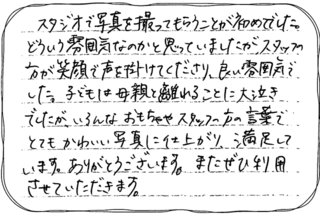 スタジオで写真を撮ってもらうことが初めてでした。
どういう雰囲気なのかと思っていましたがスタッフの
方が笑顔で声を掛けてくださり、良い雰囲気で
した。子どもは母親と離れることに大泣き
でしたが、いろんなおもちゃやスタッフの方の言葉で
とてもかわいい写真に仕上がり、満足して
います。ありがとうございます。またぜひ利用
させていただきます。